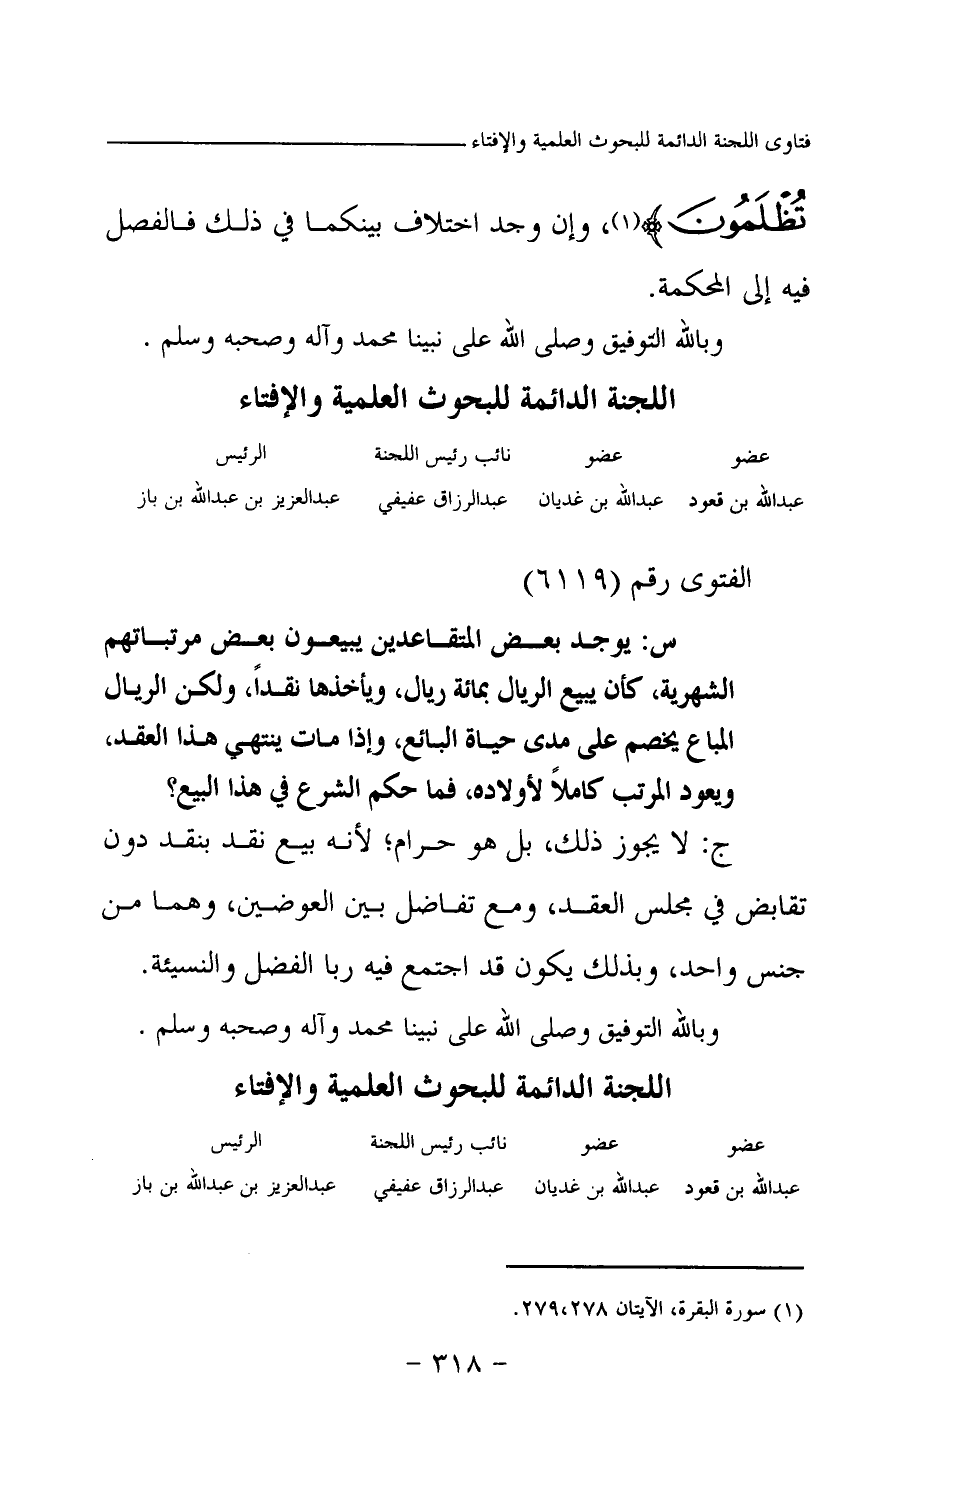 فتاوى اللجنة الدائمة للبحوث العلمية والإفتاء
تُظْلَمُونَ﴾(١)، وإن وجد اختلاف بينكما في ذلك فالفصل
فيه إلى المحكمة.
وبالله التوفيق وصلى الله على نبينا محمد وآله وصحبه وسلم .
اللجنة الدائمة للبحوث العلمية والإفتاء
عضو عضو نائب رئيس اللجنة الرئيس
عبدالله بن قعود عبدالله بن غديان عبدالرزاق عفيفي عبدالعزيز بن عبدالله بن باز
الفتوى رقم (٦١١٩)
س: يوجد بعض المتقاعدين يبيعون بعض مرتباتهم
الشهرية، كأن يبيع الريال بمائة ريال، ويأخذها نقداً، ولكن الريال
المباع يخصم على مدى حياة البائع، وإذا مات ينتهي هذا العقد،
ويعود المرتب كاملاً لأولاده، فما حكم الشرع في هذا البيع؟
ج: لا يجوز ذلك، بل هو حرام؛ لأنه بيع نقد بنقد دون
تقابض في مجلس العقد، ومع تفاضل بين العوضين، وهما من
جنس واحد، وبذلك يكون قد اجتمع فيه ربا الفضل والنسيئة.
وبالله التوفيق وصلى الله على نبينا محمد وآله وصحبه وسلم .
اللجنة الدائمة للبحوث العلمية والإفتاء
عضو عضو نائب رئيس اللجنة الرئيس
عبدالله بن قعود عبدالله بن غديان عبدالرزاق عفيفي عبدالعزيز بن عبدالله بن باز
(١) سورة البقرة، الآيتان ٢٧٨،٢٧٩.
- ٣١٨ -